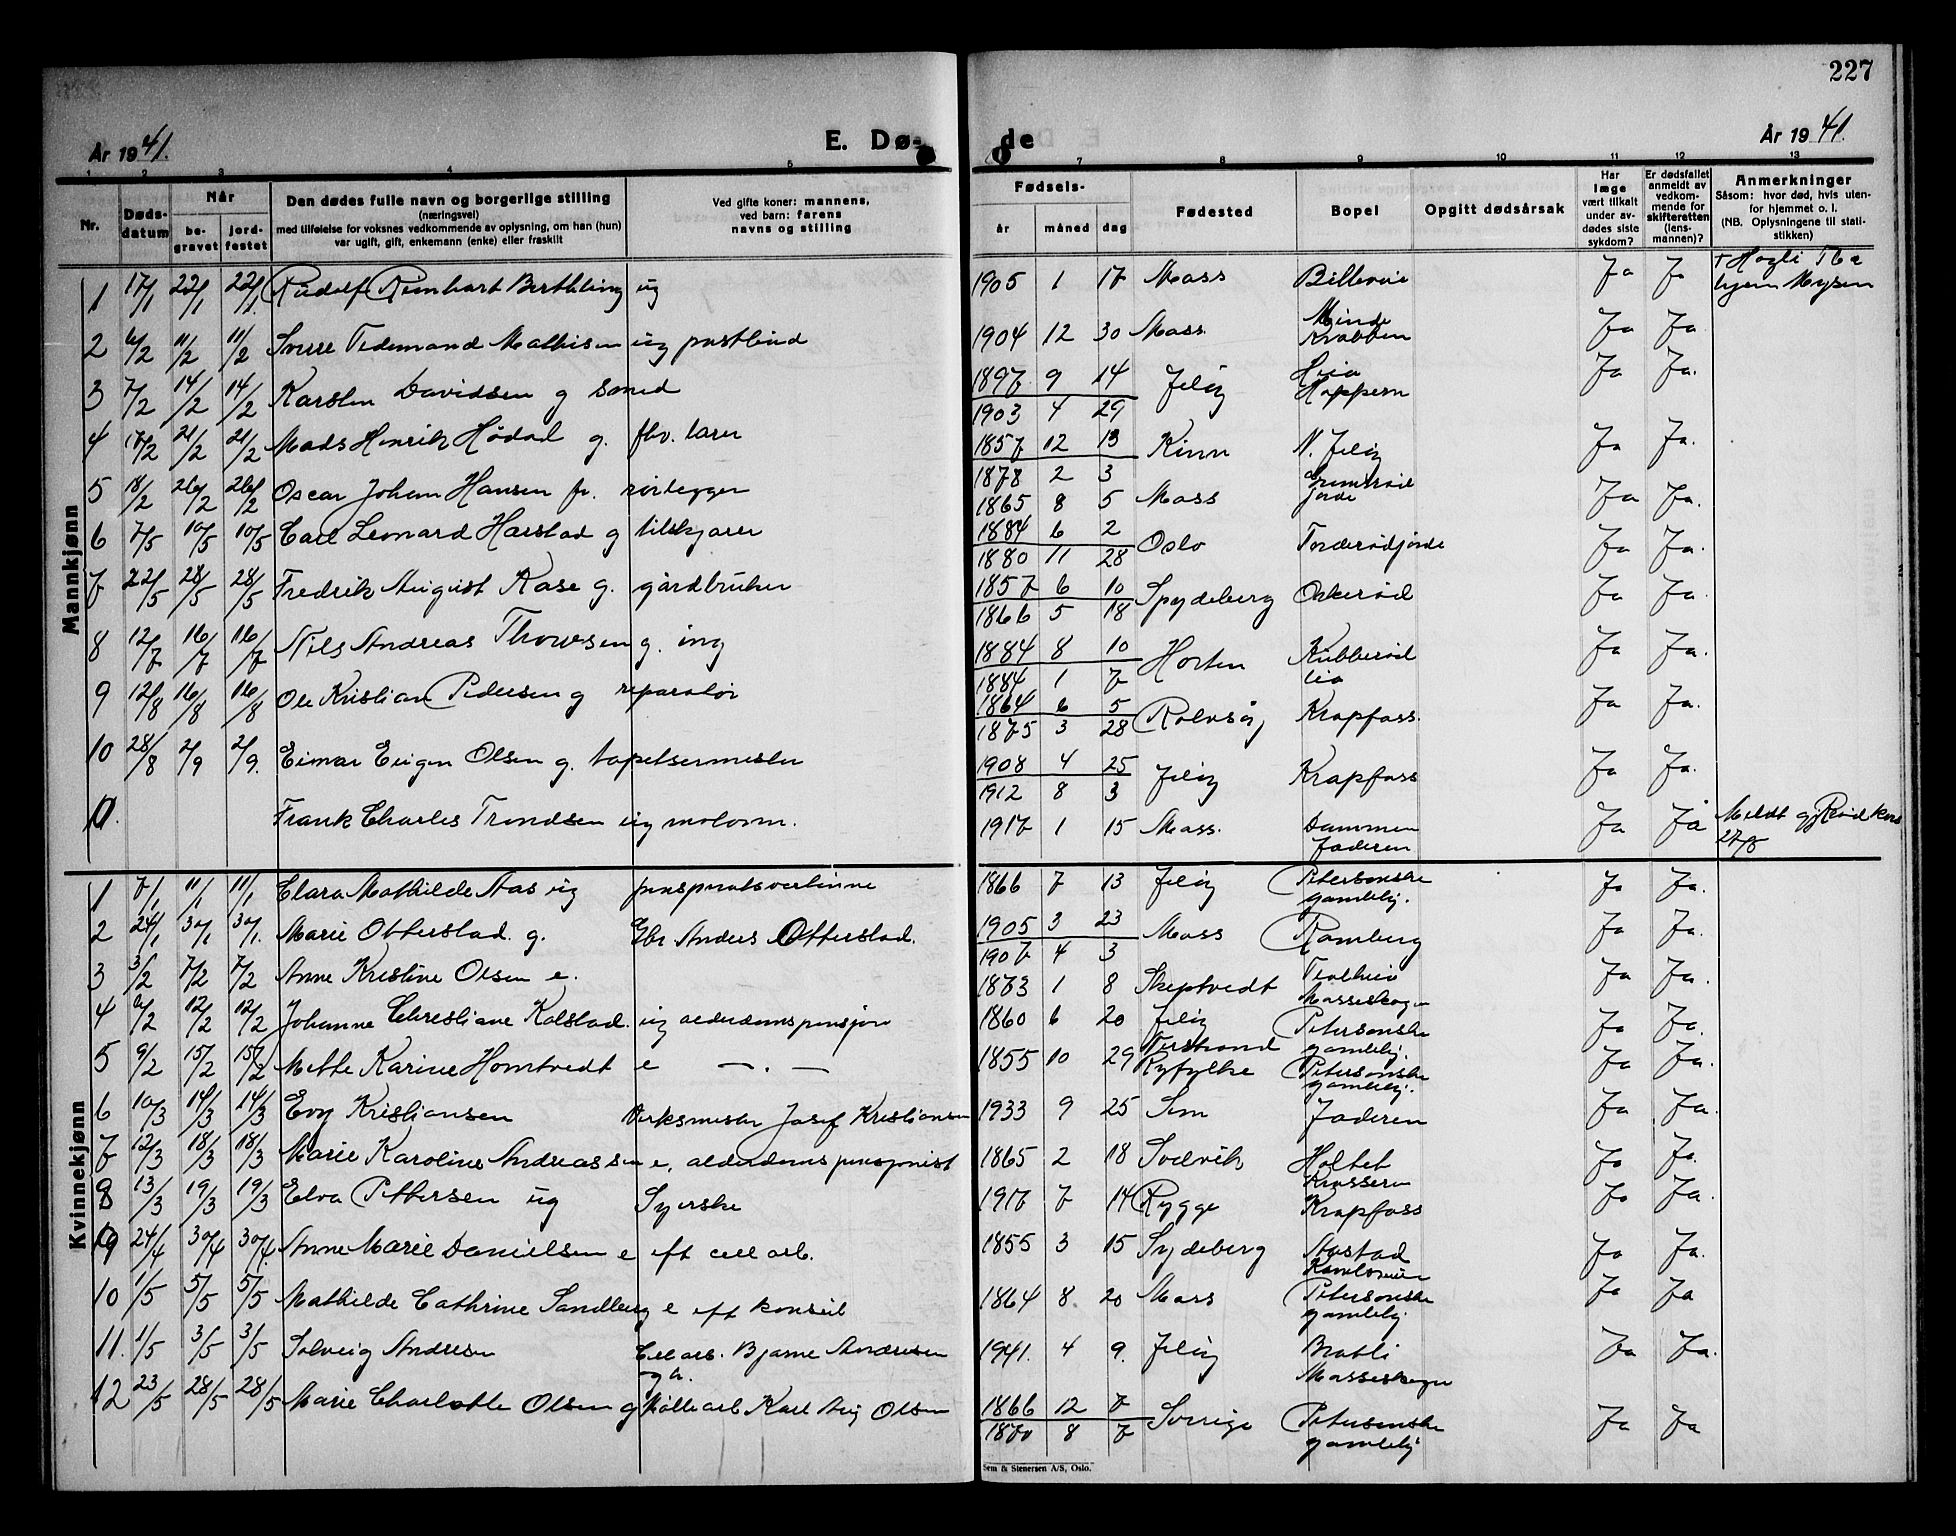 227
År 1941.
E. Dø-
de
År 1941.
1 2 3 4 5 7 8 9 10 11 12 13
Nr.
Døds-
datum
Når
be-
gravet
jord-
festet
Den dødes fulle navn og borgerlige stilling
(næringsvei)
med tilføielse for voksnes vedkommende av oplysning, om han (hun)
var ugift, gift, enkemann (enke) eller fraskilt
Ved gifte koner: mannens,
ved barn: farens
navns og stilling
Fødsels-
år måned dag
Fødested
Bopel
Opgitt dødsårsak
Har
læge
vært tilkalt
under av-
dødes siste
sykdom?
Er dødsfallet
anmeldt av
vedkom-
mende for
skifteretten
(lens-
mannen)?
Anmerkninger
Såsom: hvor død, hvis uten-
for hjemmet o. l.
(NB. Oplysningene til stati-
stikken)
Mannkjønn
1 17/1 22/1 22/1. Rudolf Reinhart Berthling ug 1905 1 17 Moss Ja Ja hjem Mysen
2 6/2 11/2 11/2 Sverre Tidemand Mathisen ug postbud 1904 12 30 Moss Krabben Ja Ja
3 7/2 14/2 14/2 Karsten Davidsen g smed 1897 9 14 Jeløy Ja Ja.
1903 4 29
4 17/2 21/2 21/2 Mads Henrik Hødal g. fhv. lærer 1857 12 13 Kinn N. Jeløy Ja Ja.
1878 2 3
5 18/2 26/2 26/2 Oscar Johan Hansen fr. rørlegger 1865 8 5 Moss Grimsrød jorde Ja Ja.
6 7/5 10/5 10/5 Carl Leonard Harstad g tilskjærer 1884 6 2 Oslo Torderødjorde Ja Ja.
1880 11 28
7 22/5 28/5 28/5 Fredrik August Kase g. gårdbruker 1857 6 10 Spydeberg Orkerød Ja Ja.
1866 5 18
8 12/7 16/7 16/7 Nils Andreas Thowsen g. ing 1884 8 10 Horten Kubberød lia Ja Ja.
1884 1 7
9 12/8 16/8 16/8 Ole Kristian Pedersen g reparatør 1864 6 5 Rolvsøy Krapfoss. Ja Ja.
1875 3 28
10 28/8 2/9 2/9. Einar Eugen Olsen g. tapetsermester 1908 4 25 Jeløy Krapfoss Ja Ja.
1912 8 3
11. Frank Charles Trondsen ug matorm. 1917 1 15 Moss. Dammen Jaderen Ja Ja Meldt gj Rød Kors 27/8
Kvinnekjønn
1 7/1 11/1 11/1 Clara Mathilde Aas ug pensjonatsvertinne 1866 7 13 Jeløy Petersonske gamlehj. Ja Ja.
2 24/1 30/1 30/1. Marie Otterstad. g. Gbr Anders Otterstad. 1905 3 23 Moss Ramberg Ja Ja.
1907 4 3
3 3/2 7/2 7/2 Anne Kristine Olsen e. 1873 1 8 Skiptvedt Mosseskogen Ja Ja.
4 6/2 12/2 12/2 Johanne Christiane Kolstad. ug alderdomspensjon 1860 6 20 Jeløy Petersonske gamlehj. Ja Ja.
5 9/2 15/2 15/2 Mette Karine Homtvedt e — . — 1855 10 29 Ryfylke Petersonske gamlehj. Ja Ja.
6 10/3 14/3 14/3 Evy Kristiansen Verksmester Josef Kristiansen 1933 9 25 Sem Jaderen Ja Ja.
7 12/3 18/3 18/3 Marie Karoline Andreassen e. alderdomspensjonist 1865 2 18 Sodvik Holtet Ja Ja.
8 13/3 19/3 19/3 Elva Pettersen ug Syerske 1917 7 14 Rygge Krapfoss Ja Ja.
9 24/4 30/4 30/4. Anne Marie Danielsen e eft cell arb. 1855 3 15 Sydeberg Ja Ja.
10 1/5 5/5 5/5 Mathilde Cathrine Sandberg e eft konseil 1864 8. 20 Moss Petersonske gamlehj. Ja Ja
11. 1/5 3/5 3/5 Solveig Andresen Cell arb. Bjarne Andresen og h. 1941. 4 9. Jeløy Bratli Mosseskogen Ja Ja.
12 23/5 28/5 28/5 Marie Charlotte Olsen g Møllearb Karl Aug Olsen 1866 12 7 Sverige Petersonske gamlehj Ja Ja
1870 8 7
Sem & Stenersen A/S, Oslo.